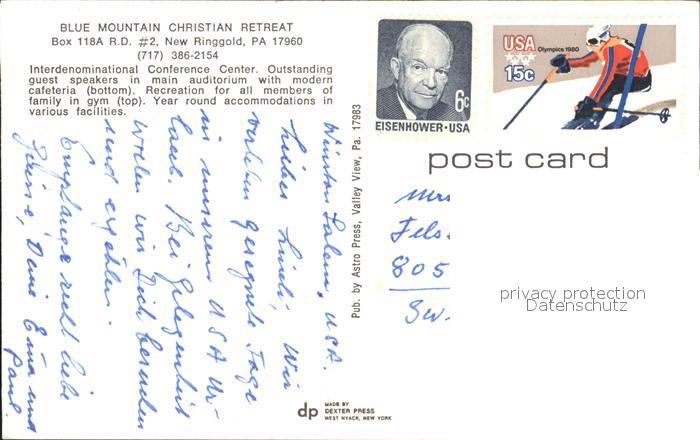 BLUE MOUNTAIN CHRISTIAN RETREAT
Box 118A R.D. #2, New Ringgold, PA 17960
(717) 386-2154
Interdenominational Conference Center. Outstanding
guest speakers in main auditorium with modern
cafeteria (bottom). Recreation for all members of
family in gym (top). Year round accommodations in
various facilities.
Winston Salem, USA.
Liebes Lindi, Wir
verleben gesegnete Tage
in unserem USA Ur-
laub. Bei Gelegenheit
wollen wir Dich besuchen
und erzählen.
Empfange recht liebe
Grüsse, Deine Erna und
Paul.
Pub. by Astro Press, Valley View, Pa. 17983
6c
EISENHOWER·USA
USA
Olympics 1980
15c
post card
Mrs
Fels.
805
privacy protection
Datenschutz
dp
MADE BY
DEXTER PRESS
WEST NYACK, NEW YORK